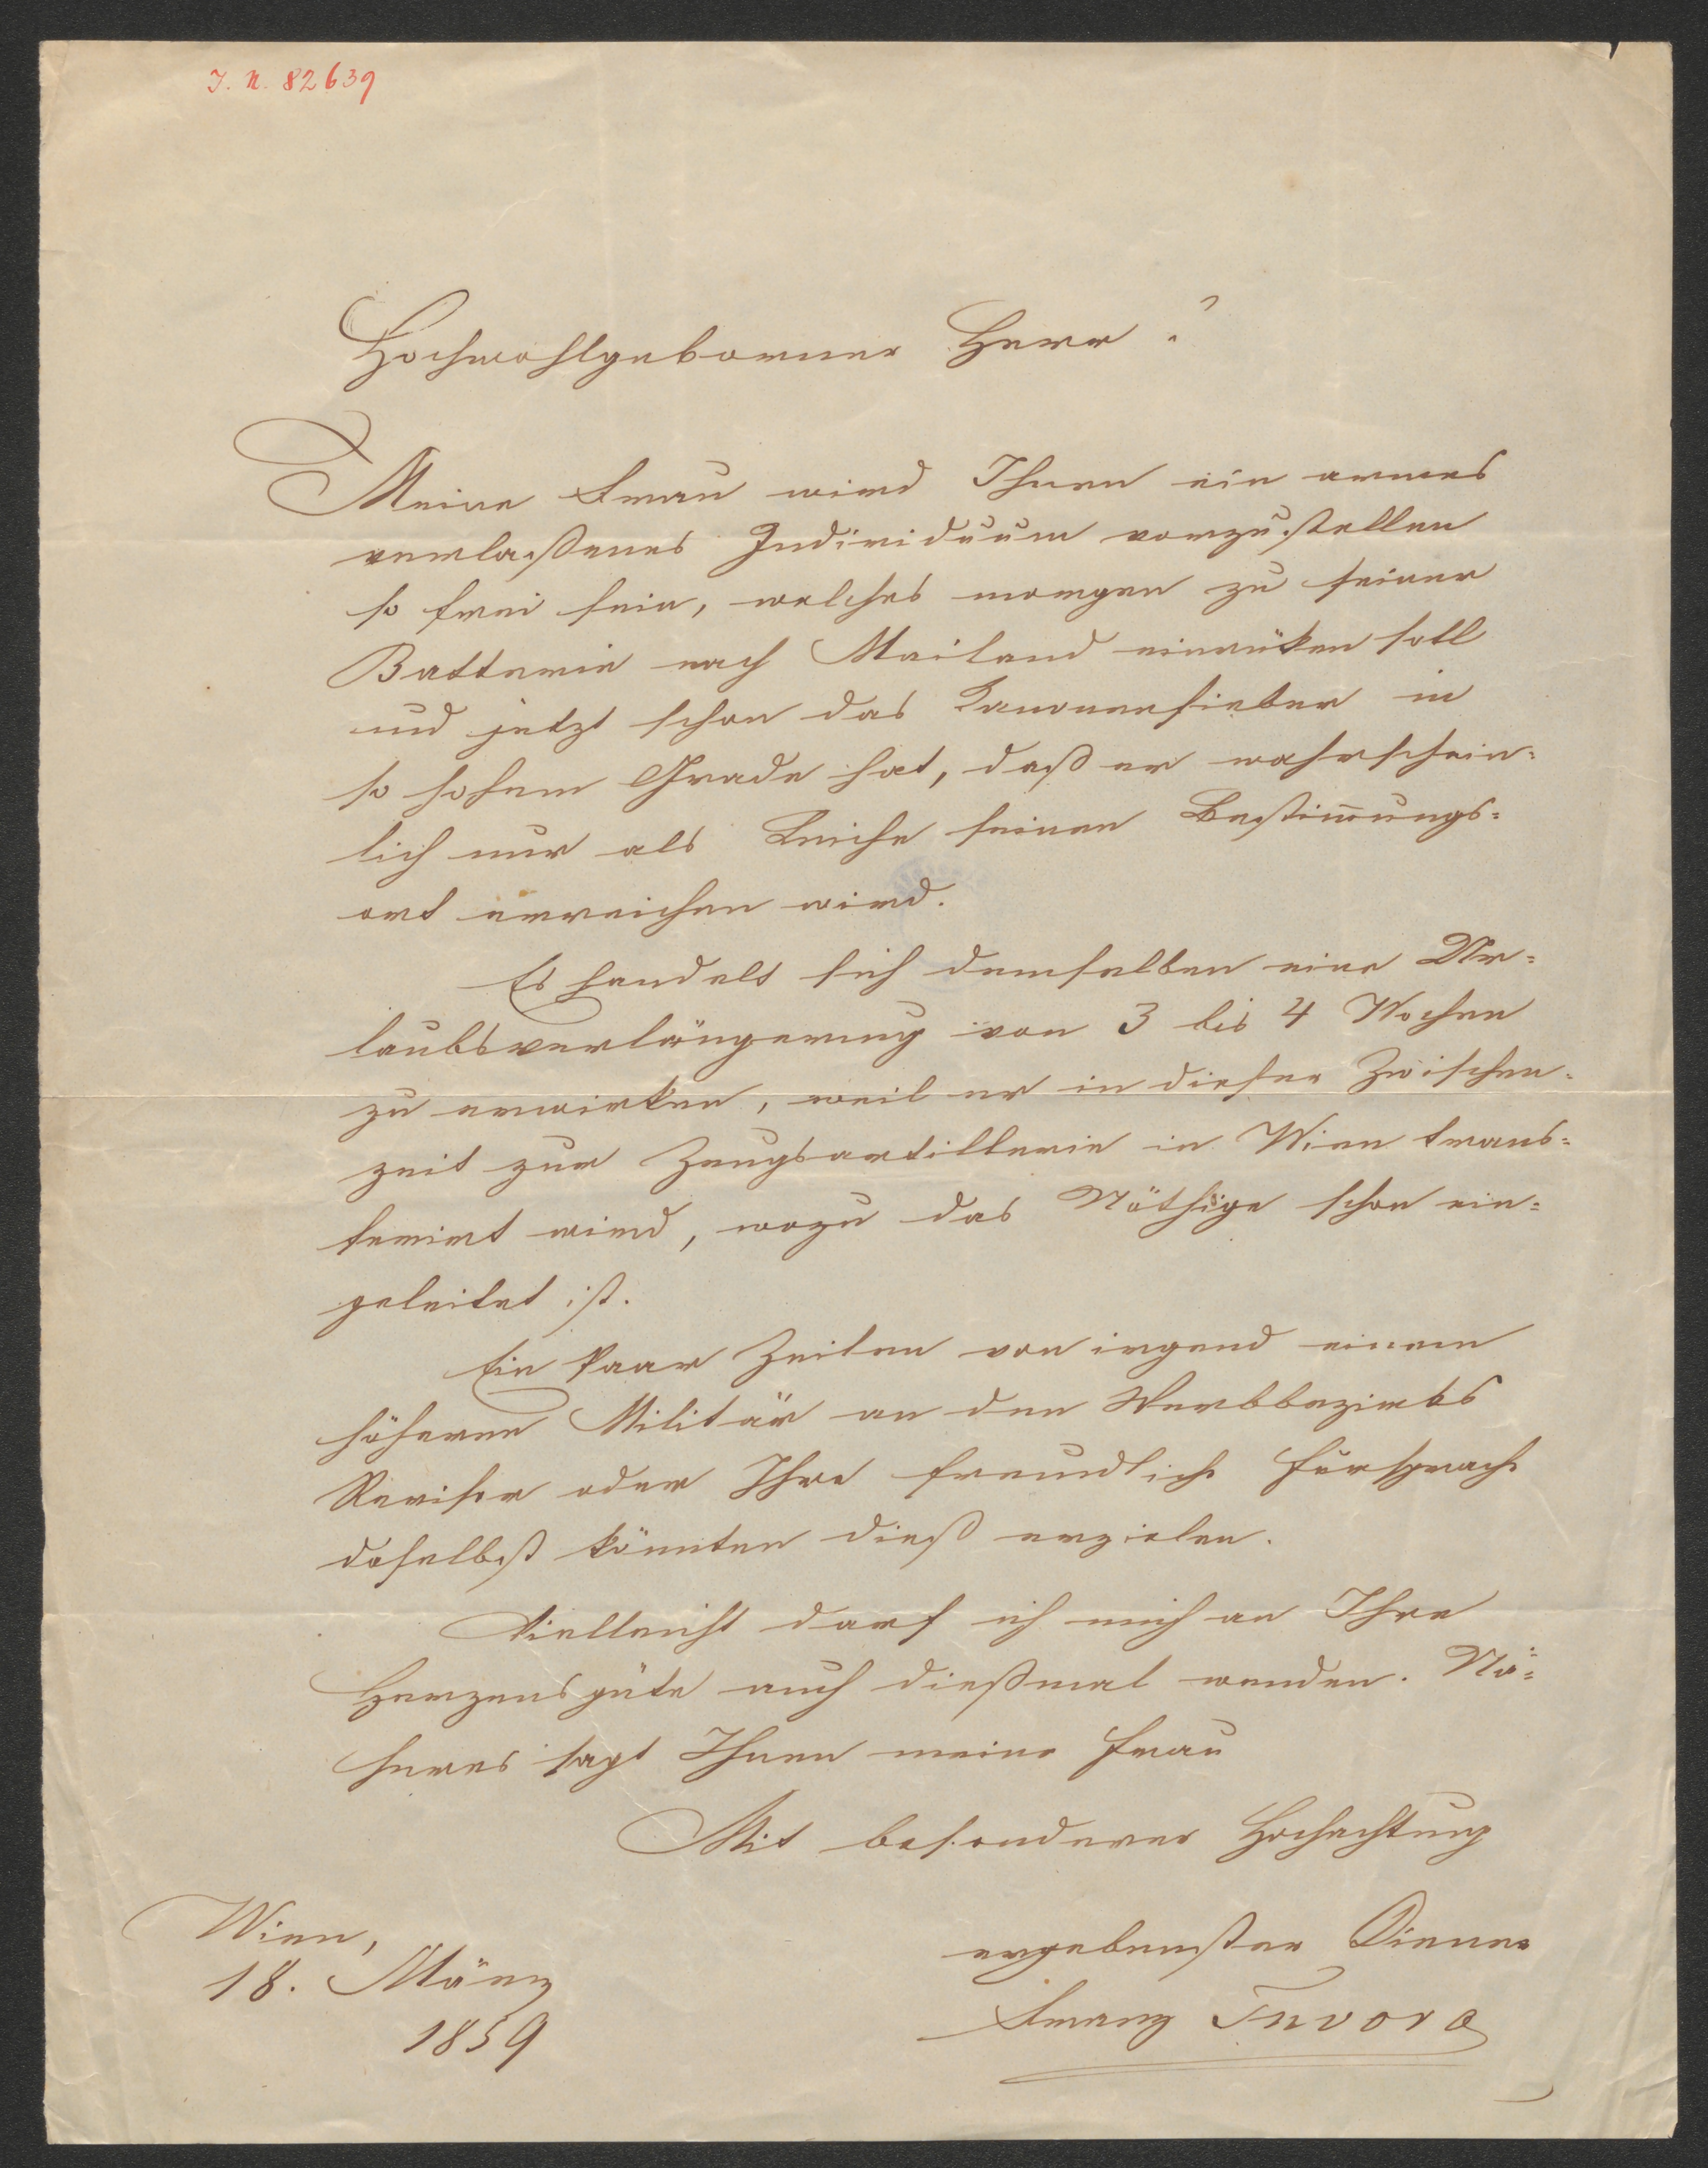 J. N. 82639
Hochwohlgeborner Herr!
Meine Frau wird Ihnen ein armes
verlaßenes Individuum vorzustellen
so frei sein, welches morgen zu seiner
Batterie nach Mailand einrüken soll
und jetzt schon das Kanonenfieber in
so hohem Grade hat, daß er wahrschein-
lich nur als Leiche seinen Bestim̅ungs-
ort erreichen wird.
Es handelt sich demselben eine Ur-
laubsverlängerung von 3 bis 4 Wochen
zu erwirken, weil er in dieser Zwischen-
zeit zur Zeugsartillerie in Wien trans-
ferirt wird, wozu das Nöthige schon ein-
geleitet ist.
Ein Paar Zeilen von irgend einem
höheren Militär an den Werbbezirks
Revisor oder Ihre freundliche Fürsprache
daselbst könnten dieß erzielen.
Vielleicht darf ich mich an Ihre
Herzensgüte auch dießmal wenden. Nä-
heres sagt Ihnen meine Frau
Mit besonderer Hochachtung
Wien,
18. März
1859
ergebenster Diener
Franz